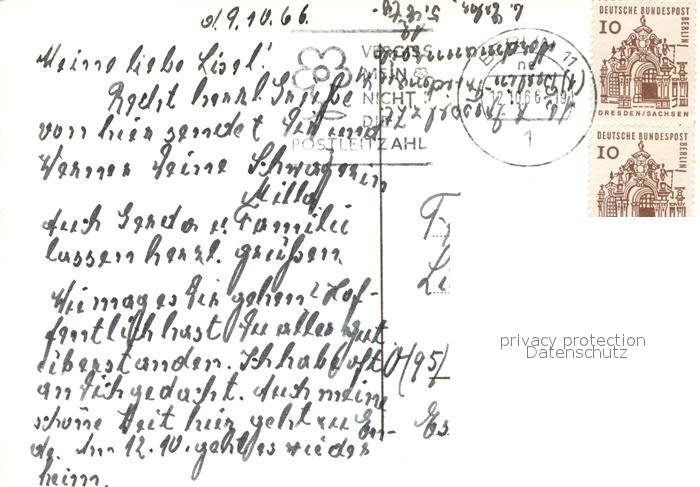 d. 9.10.66.
Meine liebe Lisel!
Recht herzl. Grüße
von hier sendet Dir und
Werner Deine Schwägerin
Milla
Auch Gerda u. Familie
lassen herzl. grüßen.
Wie mag es Dir gehen? Hof-
fentlich hast Du alles gut
überstanden. Ich habe oft
an Dich gedacht. Auch meine
schöne Zeit hier geht zu En-
de. Am 12.10. geht es wieder
heim.
VERGISS
MEIN
NICHT
DIE
POSTLEITZAHL
BERLIN 11
12.10.66
1
10
DEUTSCHE BUNDESPOST
BERLIN
DRESDEN/SACHSEN
10
DEUTSCHE BUNDESPOST
BERLIN
(95)
privacy protection
Datenschutz